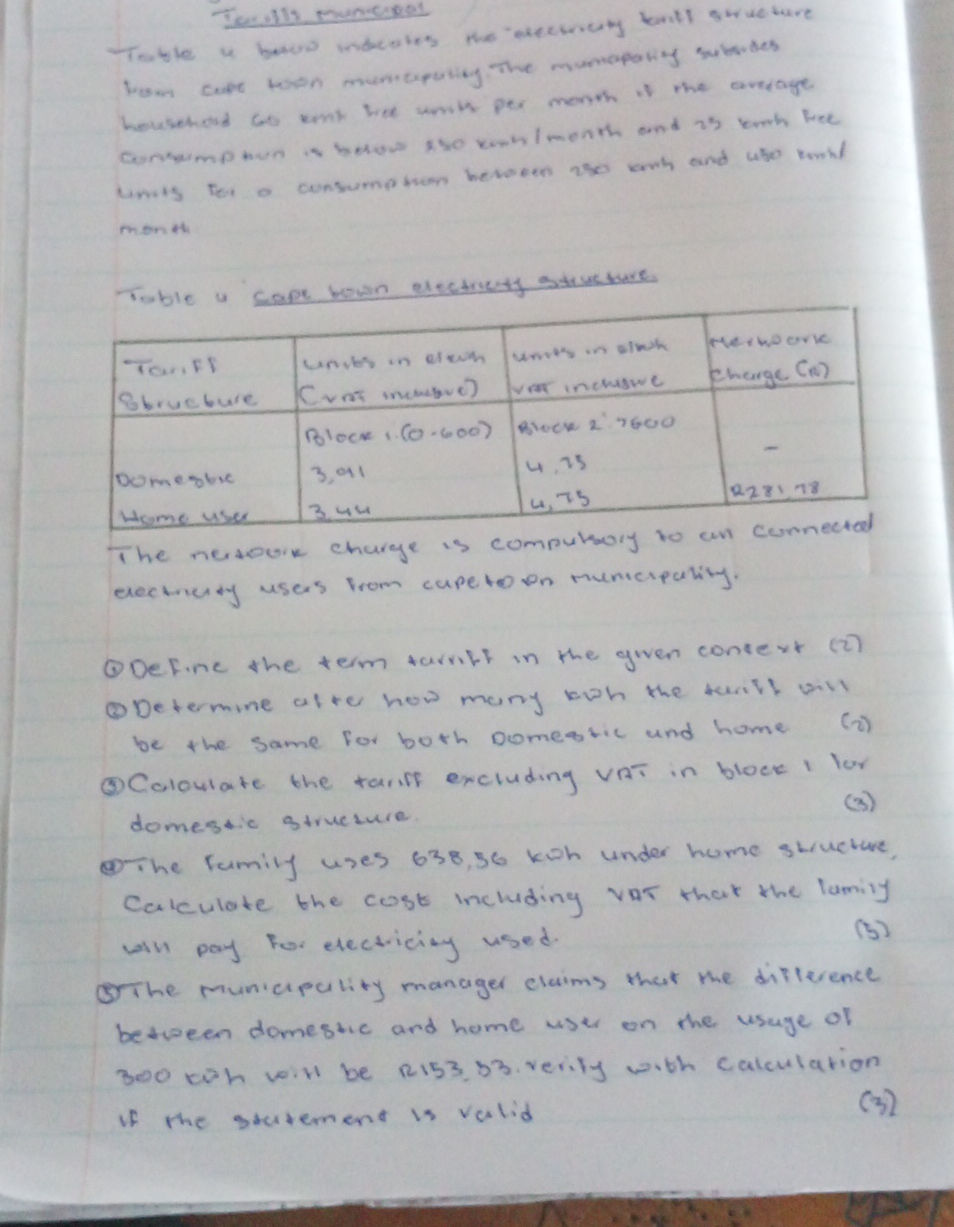 Tariffs municipal
Table 4 below indicates the electricity tariff structure
from cape town municipality. The municipality subsides
household 60 kwh free units per month if the average
consumption is below 250 kwh/month and 25 kwh free
units for a consumption between 250 kwh and 450 kwh/
month
Table 4 cape town electricity structure.
Tariff Structure | units in c/kwh (VAT inclusive) | units in c/kwh VAT inclusive | Network charge (R)
Block 1. (0-600) | Block 2: >600
Domestic | 3,91 | 4,75 | -
Home user | 3,44 | 4,75 | R281,78
The network charge is compulsory to all connected
electricity users from cape town municipality.
① Define the term tarriff in the given context (2)
② Determine after how many kwh the tariff will
be the same for both Domestic and home (2)
③ Calculate the tariff excluding VAT in block 1 for
domestic structure. (3)
④ The family uses 638,56 kwh under home structure,
Calculate the cost including VAT that the family
will pay for electricity used. (5)
⑤ The municipality manager claims that the difference
between domestic and home user on the usage of
300 kwh will be R153,53. verify with calculation
if the statement is valid (3)